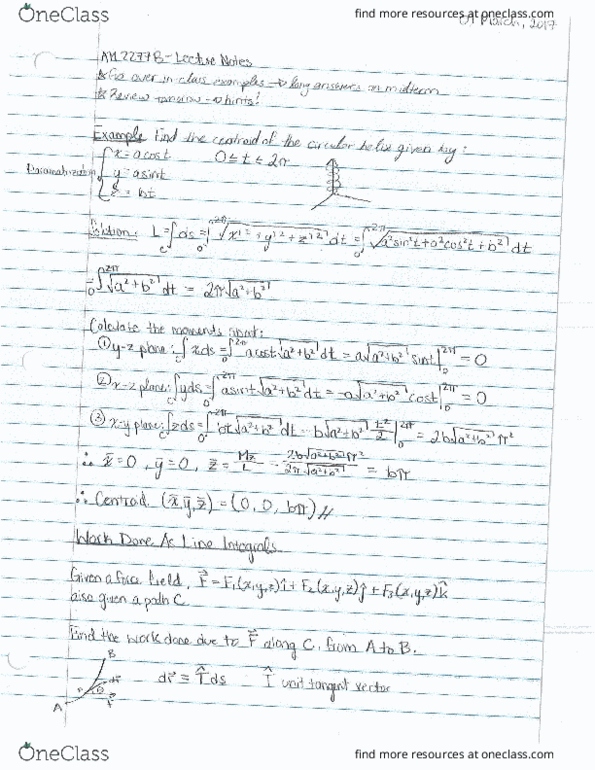 OneClass
find more resources at oneclass.com
01 March, 2017
AM 2277B - Lecture Notes
* Go over in class examples → long answers on midterm
* Review session → hints!
Example Find the centroid of the circular helix given by:
Parametrization { x = a cos t   0 ≤ t ≤ 2π
y = a sin t
z = bt
Solution: L = ∫_C ds = ∫_0^{2π} √(x'² + y'² + z'²) dt = ∫_0^{2π} √(a² sin² t + a² cos² t + b²) dt
= ∫_0^{2π} √(a² + b²) dt = 2π √(a² + b²)
Calculate the moments about:
① y-z plane: ∫_C x ds = ∫_0^{2π} a cos t √(a² + b²) dt = a √(a² + b²) sin t |_0^{2π} = 0
② x-z plane: ∫_C y ds = ∫_0^{2π} a sin t √(a² + b²) dt = -a √(a² + b²) cos t |_0^{2π} = 0
③ x-y plane: ∫_C z ds = ∫_0^{2π} bt √(a² + b²) dt = b √(a² + b²) t²/2 |_0^{2π} = 2b √(a² + b²) π²
∴ x̄ = 0, ȳ = 0, z̄ = Mz/L = 2b√(a² + b²) π² / 2π√(a² + b²) = bπ
∴ Centroid (x̄, ȳ, z̄) = (0, 0, bπ) //
Work Done As Line Integrals
Given a force field, F⃗ = F₁(x,y,z)î + F₂(x,y,z)ĵ + F₃(x,y,z)k̂
also given a path C.
Find the work done due to F⃗ along C, from A to B.
B
dr⃗ ≡ T̂ ds   T̂ unit tangent vector
A
OneClass
find more resources at oneclass.com